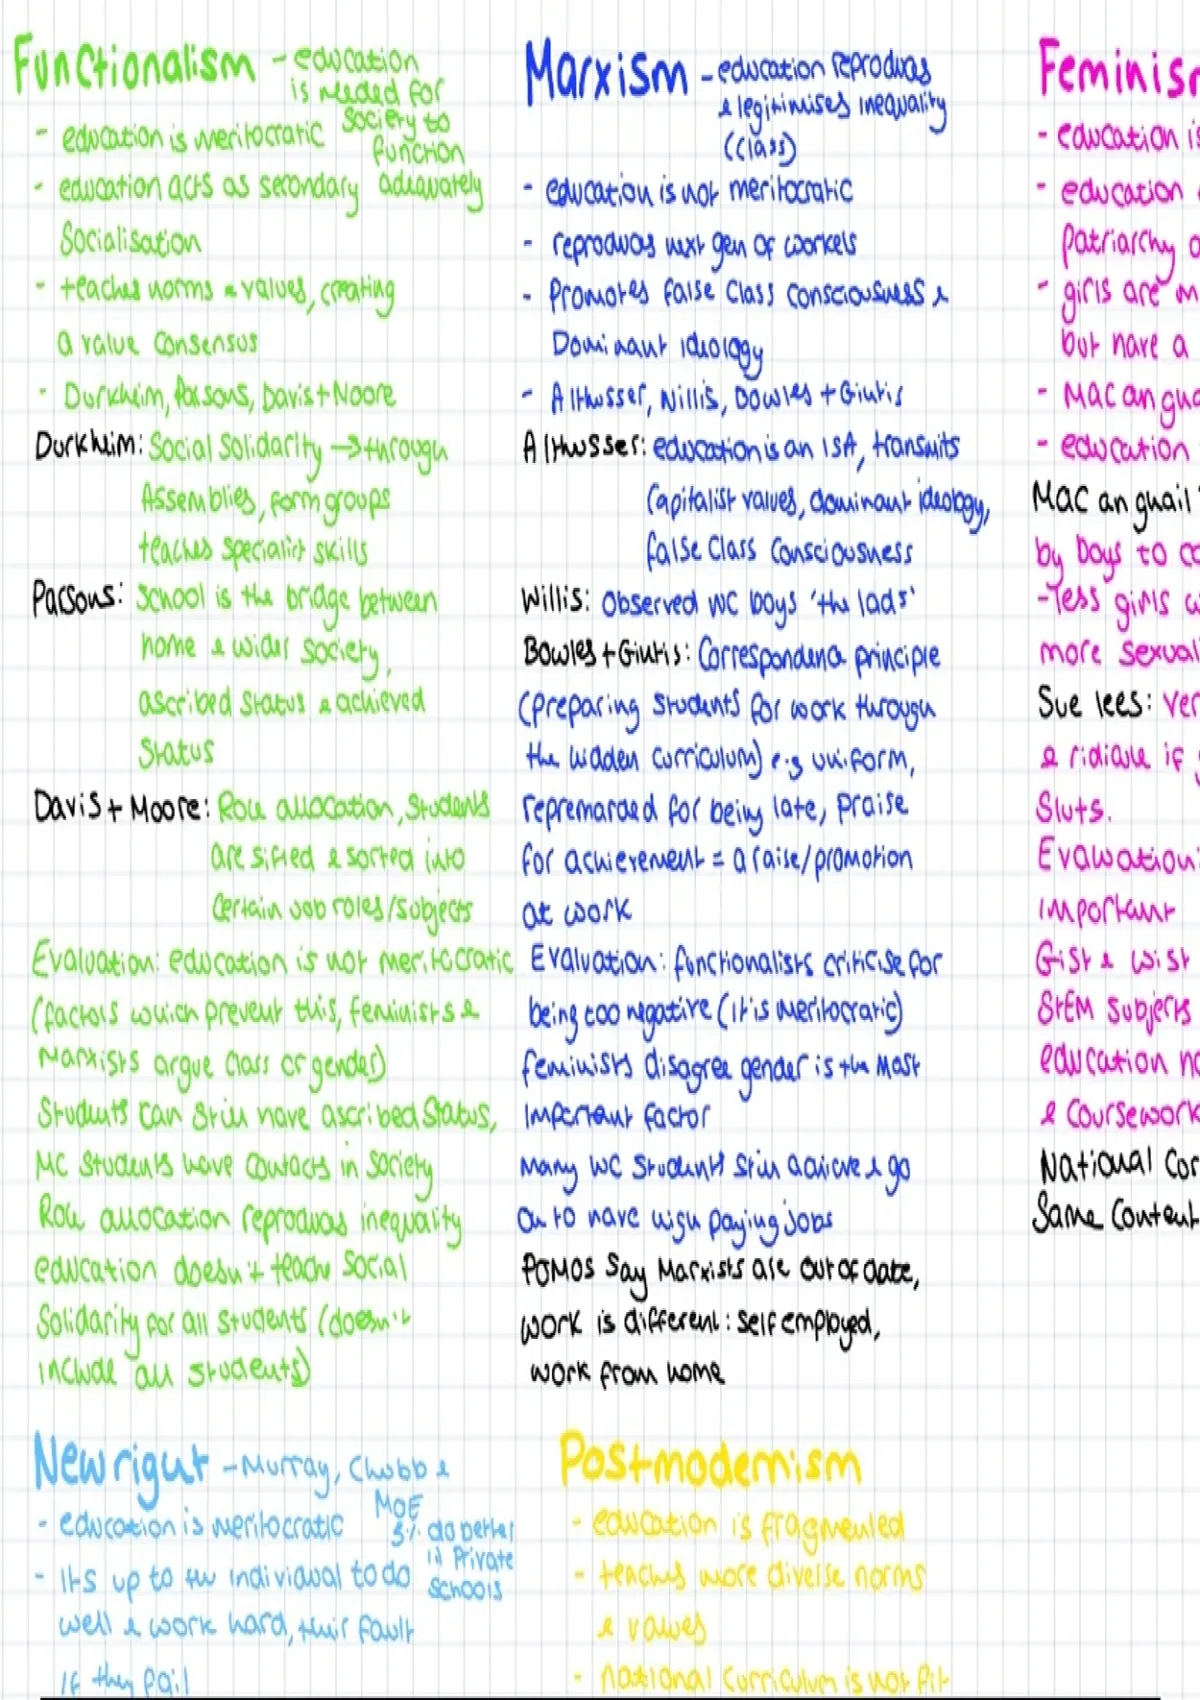 Functionalism - education
is needed for
society to
function
adequately
- education is meritocratic
- education acts as secondary
Socialisation
- teaches norms & values, creating
a value consensus
- Durkheim, Parsons, Davis + Noore
Durkheim: Social Solidarity → through
Assemblies, form groups
teaches specialist skills
Parsons: School is the bridge between
home & wider society,
ascribed status & achieved
Status
Davis + Moore: Role allocation, Students
are sifted & sorted into
Certain job roles/subjects
Evaluation: education is not meritocratic
(factors which prevent this, feminists &
Marxists argue class or gender)
Students can still have ascribed status,
MC students have contacts in society
Role allocation reproduces inequality
education doesn't teache social
Solidarity for all students (doesn't
include all students)
Marxism - education reproduces
& legitimises inequality
(class)
- education is not meritocratic
- reproduces next gen of workers
- Promotes false class consciousness &
Dominant ideology
- Althusser, Willis, Bowles + Gintis
Althusser: education is an ISA, transmits
Capitalist values, dominant ideology,
false class consciousness
Willis: Observed WC boys 'the lads'
Bowles + Gintis: Correspondence principle
(preparing students for work through
the hidden curriculum) e.g uniform,
repremarded for being late, praise
for achievement = a raise/promotion
at work
Evaluation: functionalists criticise for
being too negative (it is meritocratic)
feminists disagree gender is the most
important factor
Many WC students still achieve & go
on to have high paying jobs
POMOS Say Marxists are out of date,
work is different: self employed,
work from home
Feminis
- education is
- education
patriarchy
- girls are
but have a
- Mac an
- education
Mac an guail
by boys to co
- less girls
more sexual
Sue lees: ver
& ridicule if
Sluts.
Evaluation:
important
Gist & wist
STEM subjects
education no
& coursework
National Cor
Same content
New right - Murray, Chubb &
MOE
5% do better
in Private
Schools
- education is meritocratic
- Its up to the individual to do
well & work hard, their fault
if they fail
Postmodernism
- education is fragmented
- teaches more diverse norms
& values
- national curriculum is not fit